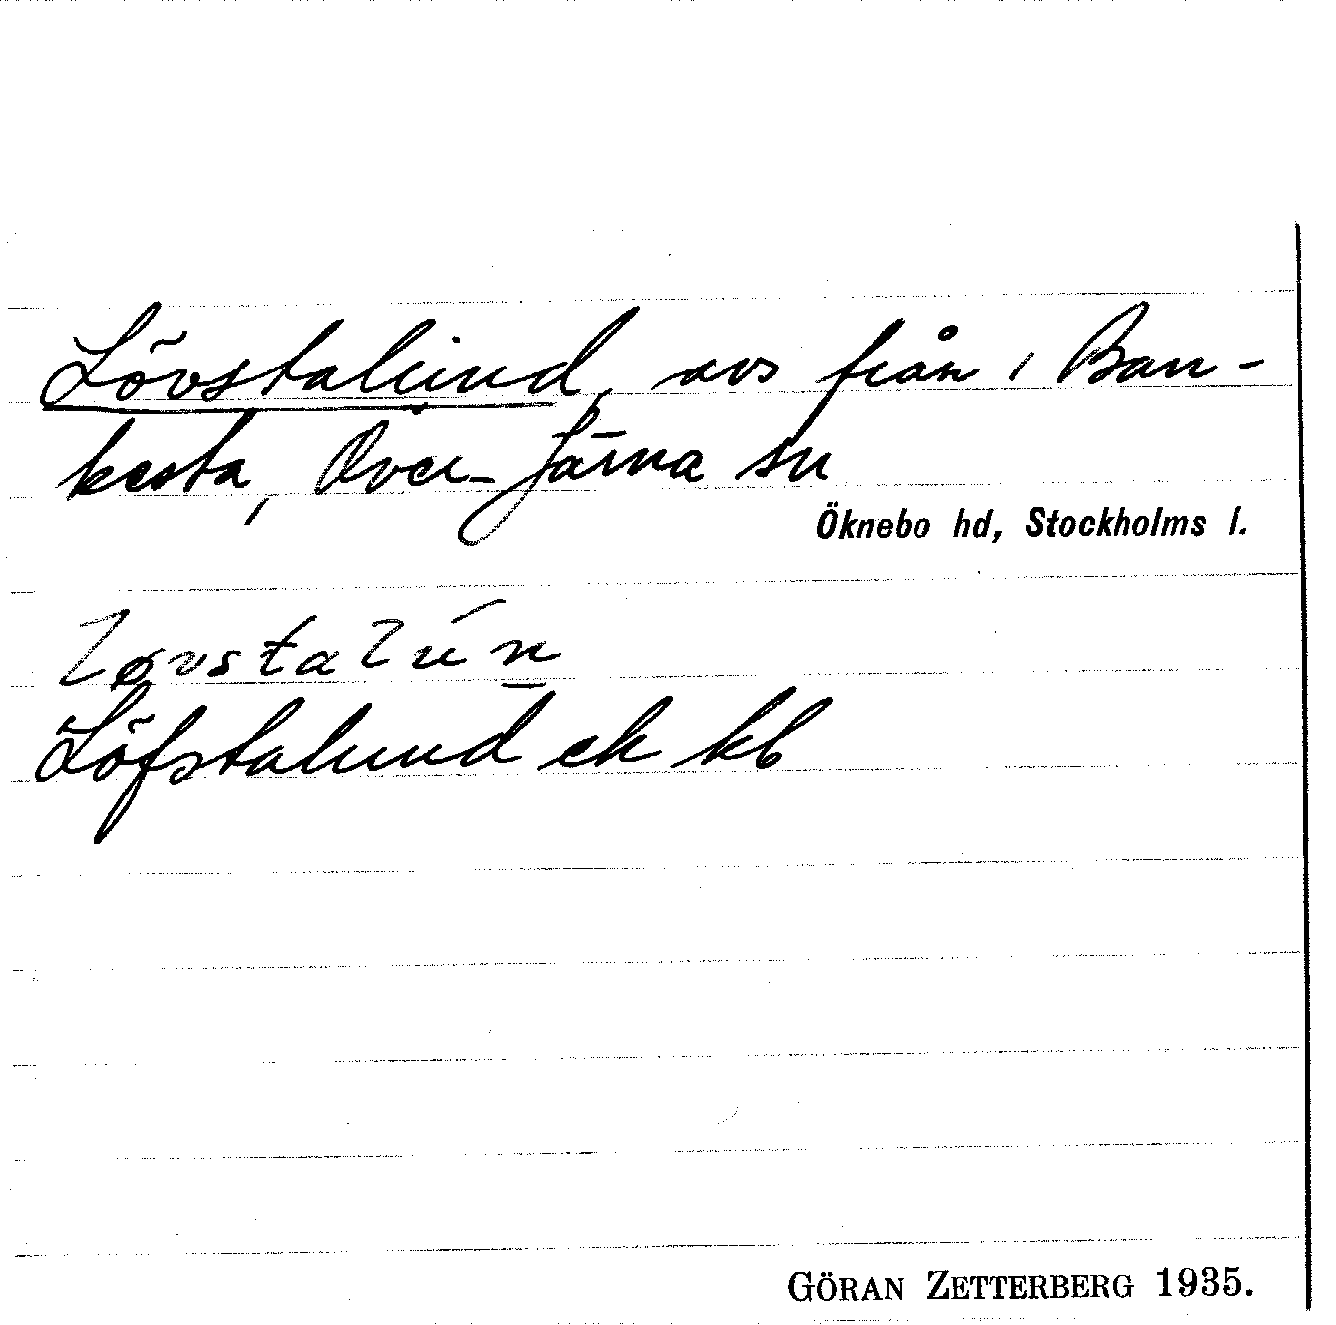 Lövstalund, avs från 1 Ban-
kesta, Över-Järna sn
Öknebo hd, Stockholms l.
løvstalún
Löfstalund ek kb
GÖRAN ZETTERBERG 1935.